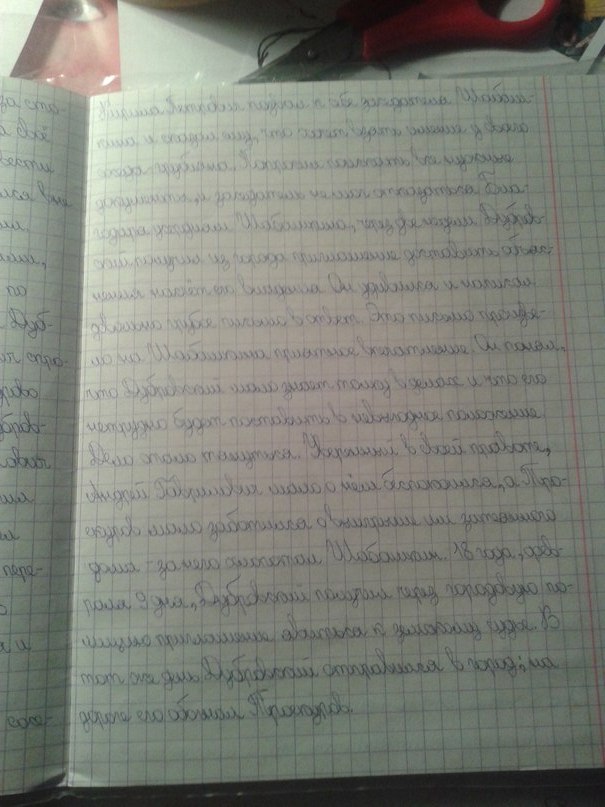 за сто-
а своё
вести
лся в не
ли.
ами,
по
Дуб-
спро-
право
дубров-
ловои
пере-
а и
сосе-
Кирила Петрович позвал к себе заседателя Шабаш-
кина и сказал ему, что хочет взять имение у своего
соседа Дубровского.
документы, и заседатель не мог отказаться. Бла-
годаря усилиям Шабашкина, через две недели Дубров-
ский получил из города приглашение доставить объяс-
нения насчёт его владения. Он удивился и написал
довольно грубое письмо в ответ. Это письмо произве-
ло на Шабашкина приятное впечатление. Он понял,
что Дубровский мало знает толку в делах и что его
нетрудно будет поставить в невыгодное положение.
Дело стало тянуться. Уверенный в своей правоте,
Андрей Гаврилович мало о нём беспокоился, а Трое-
куров мало заботился о выигрыше им затеянного
дела - за него хлопотал Шабашкин. 18 года, фев-
раля 9 дня, Дубровский получил через городовую по-
лицию приглашение явиться к земскому судье. В
тот же день Дубровский отправился в город; на
дороге его обогнал Троекуров.